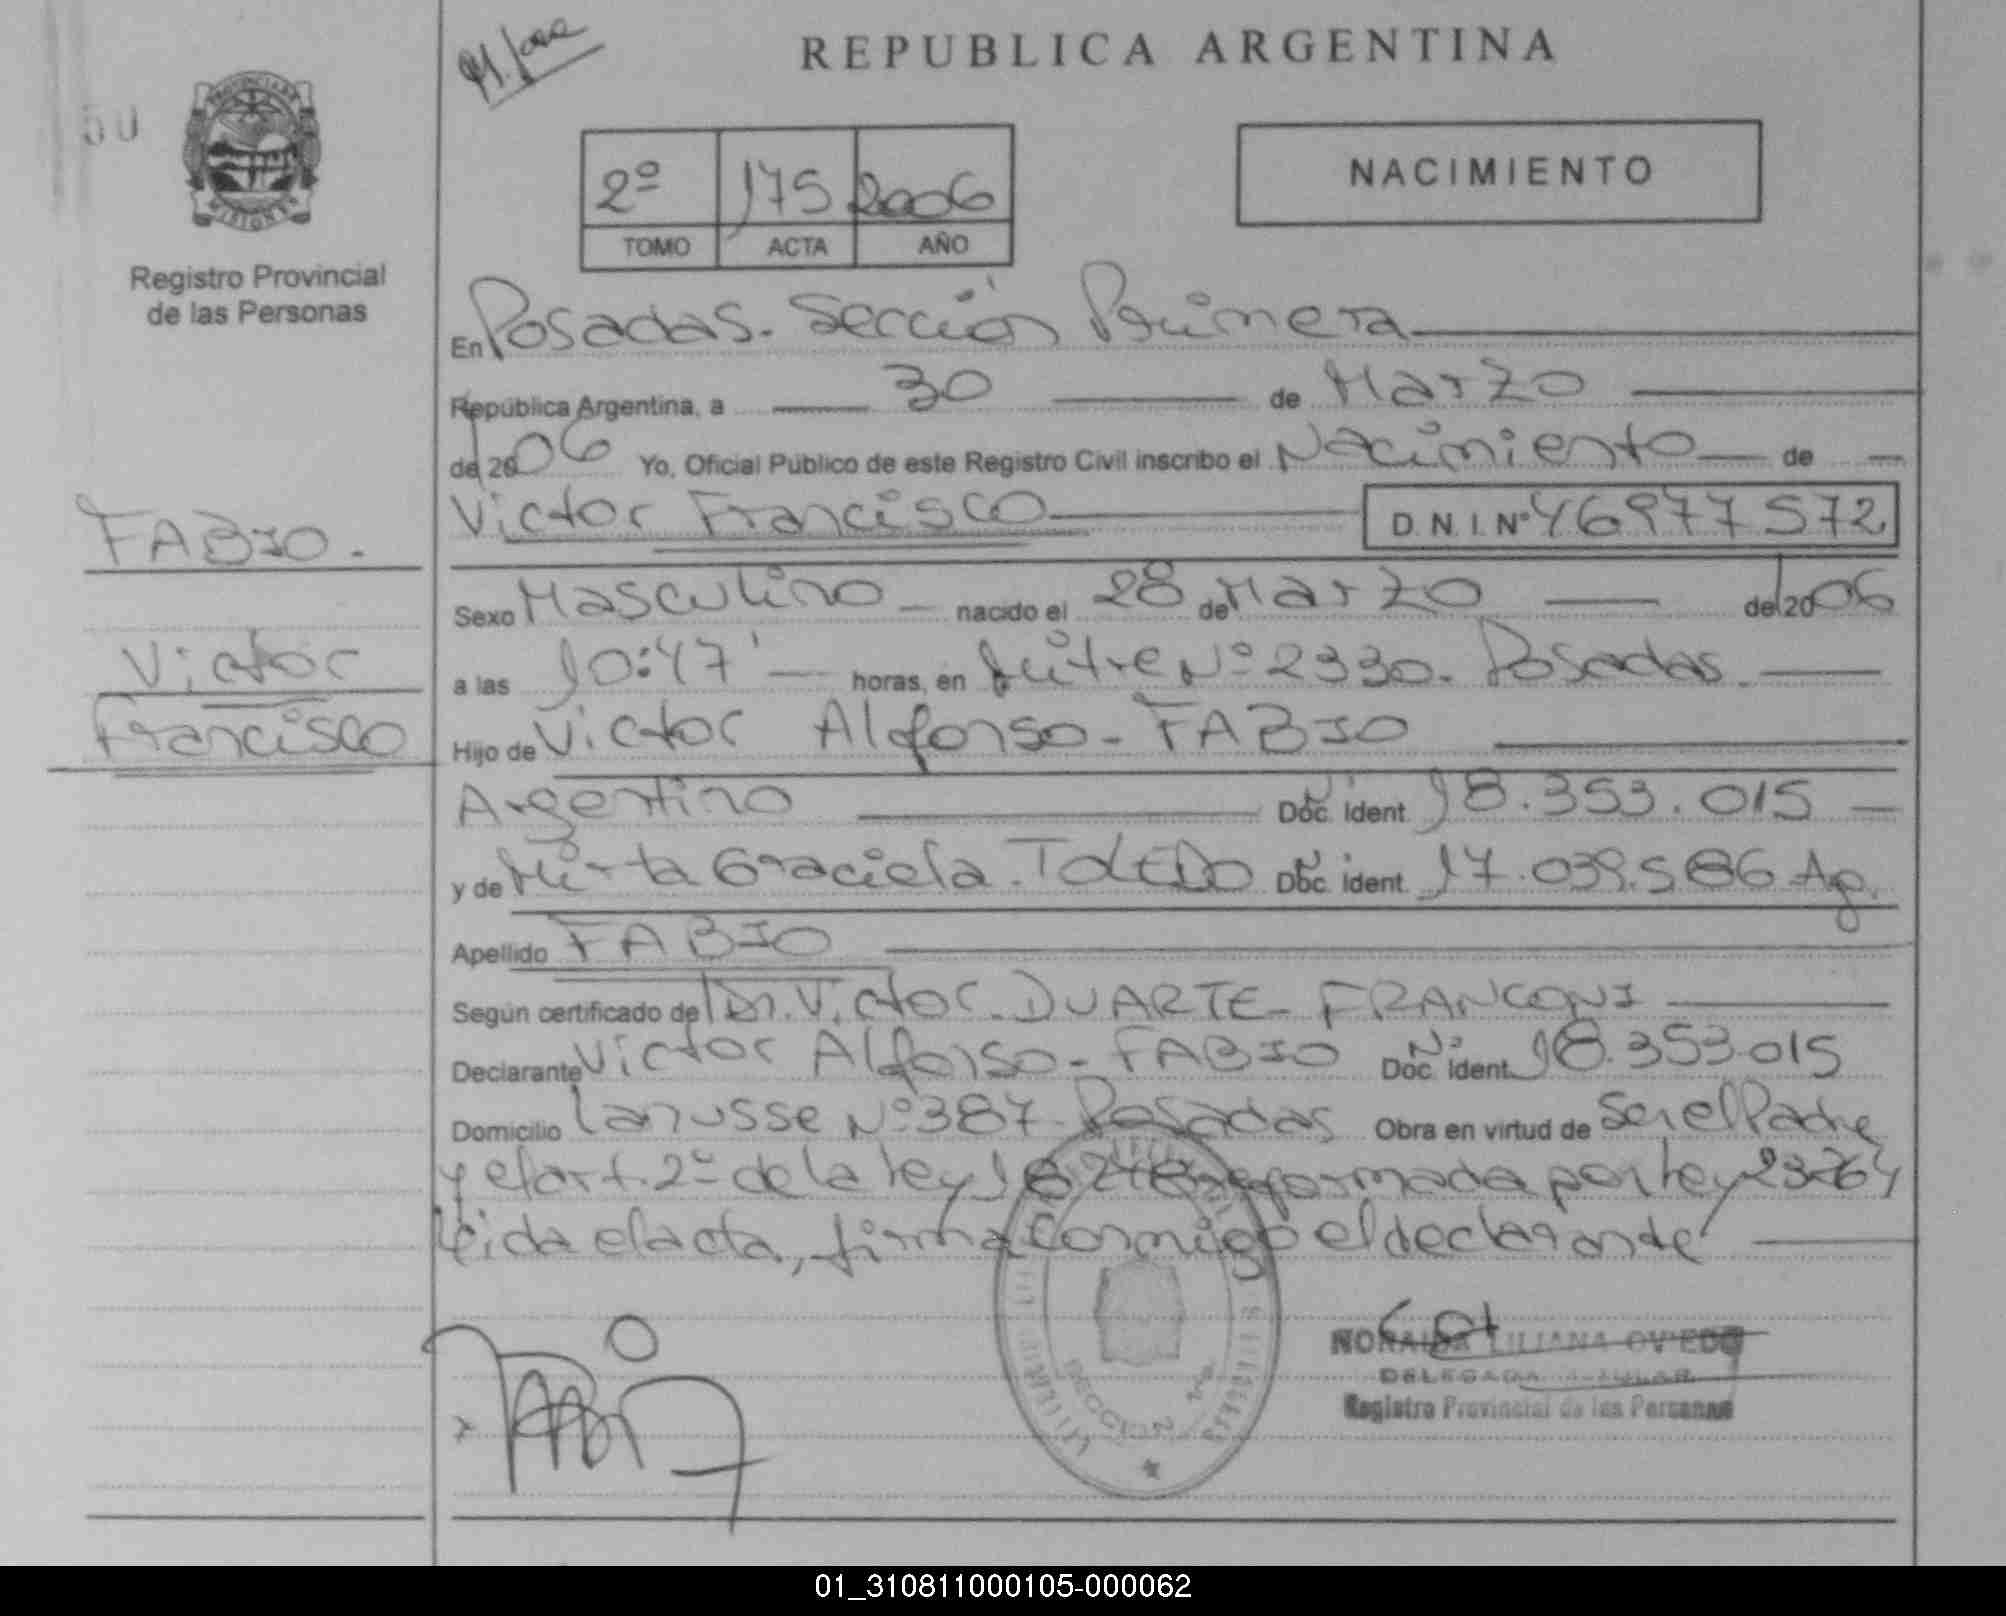 M. Jose
REPUBLICA ARGENTINA
50
PROVINCIA DE
MISIONES
Registro Provincial
de las Personas
2º 175 2006
TOMO ACTA AÑO
NACIMIENTO
En Posadas. Sección Primera
República Argentina, a 30 de Marzo
de 2006 Yo, Oficial Público de este Registro Civil inscribo el Nacimiento de
Victor Francisco D.N.I.Nº 46977572
FABIO.
Victor
Francisco
Sexo Masculino nacido el 28 de Marzo de 2006
a las 10:47' horas, en Mitre Nº 2330. Posadas
Hijo de Victor Alfonso - FABIO
Argentino Doc. Ident. 18.353.015
y de Mirta Graciela. TOLEDO Doc. Ident. 17.039.586 Arg.
Apellido FABIO
Según certificado de Dr. Victor. DUARTE - FRANCONI
Declarante Victor Alfonso - FABIO Doc. Ident. Nº 18.353.015
Domicilio Lanusse Nº 387 - Posadas Obra en virtud de Ser el Padre
y el art. 2º de la ley 18248 reformada por ley 23264
Leida el acta, firma conmigo el declarante
NORAIDA LILIANA OVIEDO
DELEGADA TITULAR
Registro Provincial de las Personas
SECCION 1ra
01_310811000105-000062